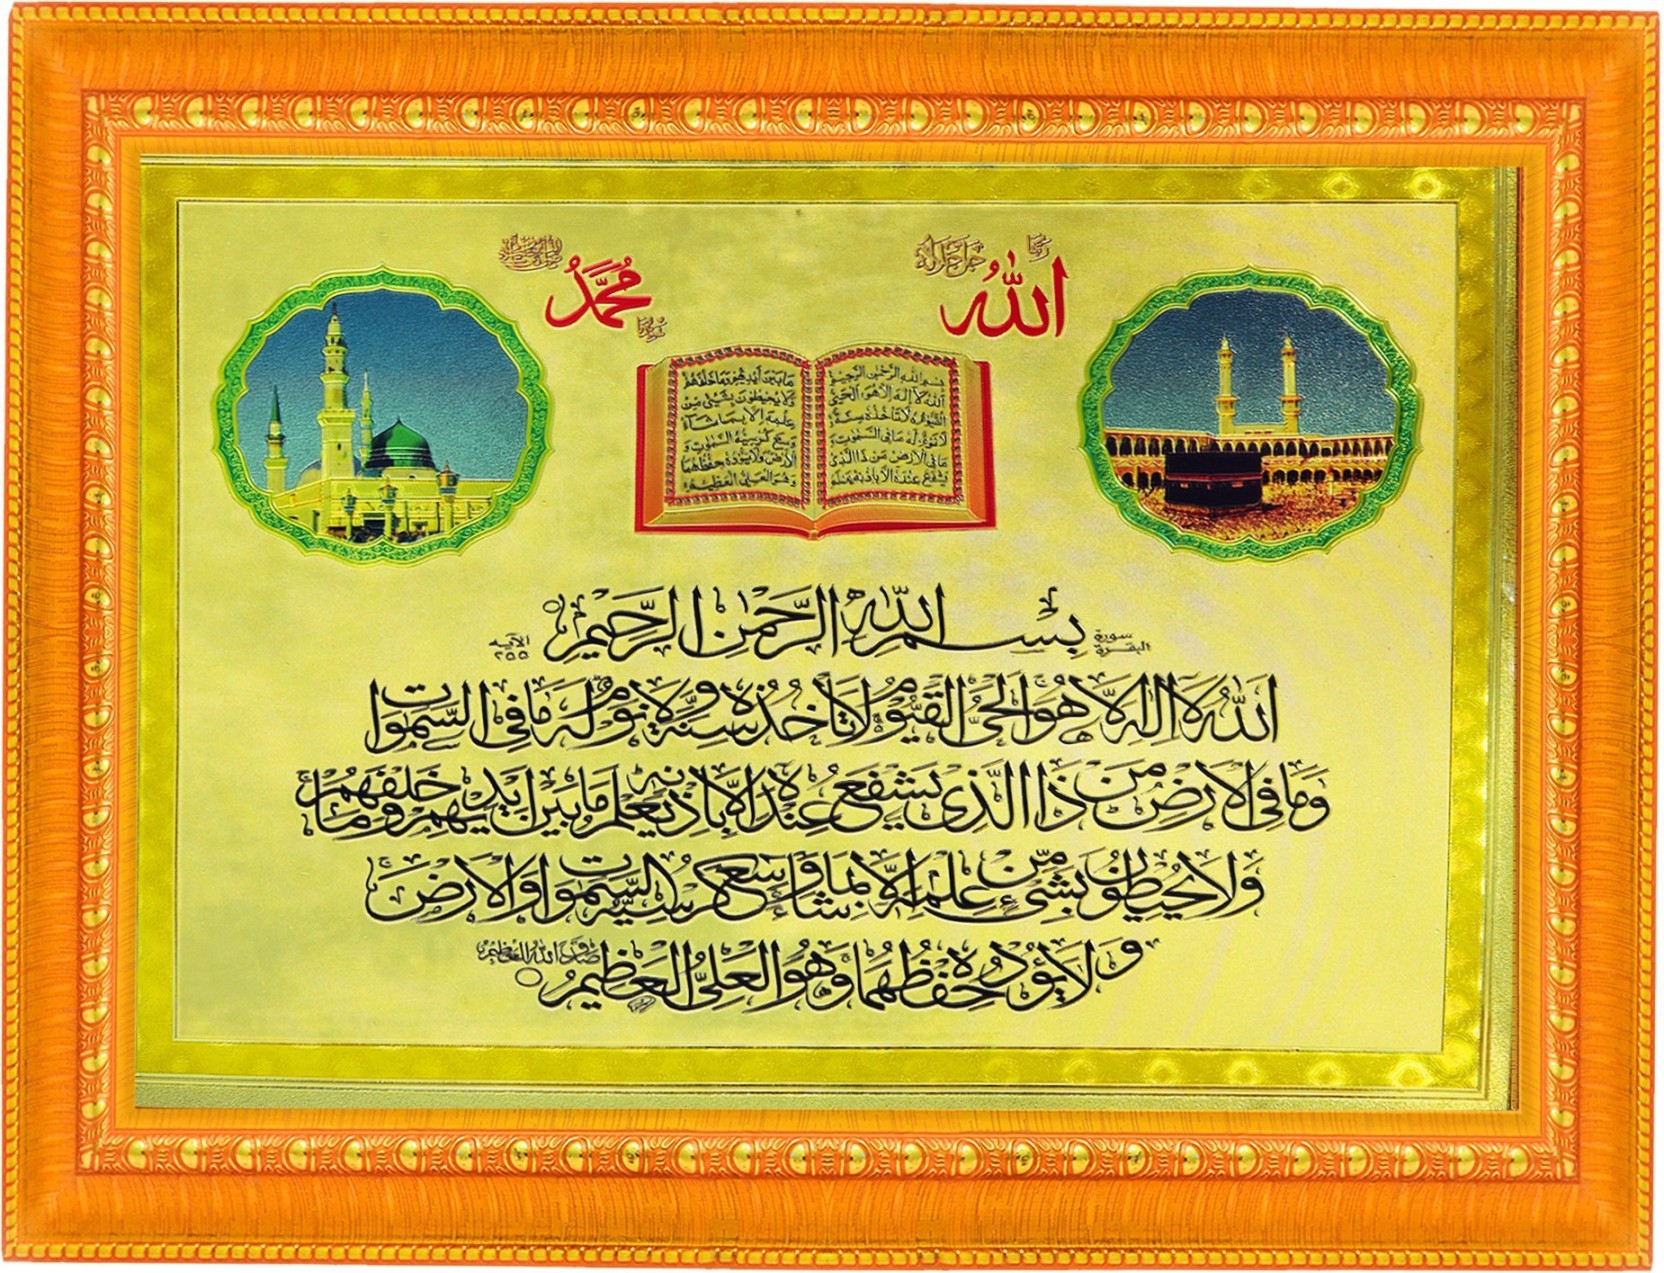 ربنا
الله
جل جلاله
محمد
بسم الله الرحمن الرحيم
الله لا اله الا هو الحي
القيوم لا تاخذه سنة و
لا نوم له ما في السموت و
ما في الارض من ذا الذي
يشفع عنده الا باذنه يعلم
ما بين ايديهم وما خلفهم
ولا يحيطون بشيء من
علمه الا بما شاء
وسع كرسيه السموت و
الارض ولا يؤده حفظهما
وهو العلي العظيم
سورة
البقرة
بِسْمِ اللهِ الرَّحْمٰنِ الرَّحِيْمِ
الآيه
٢٥٥
اَللّٰهُ لَا اِلٰهَ اِلَّا هُوَ الْحَيُّ الْقَيُّوْمُ لَا تَأْخُذُهٗ سِنَةٌ وَّلَا نَوْمٌ لَهٗ مَا فِى السَّمٰوٰتِ
وَمَا فِى الْاَرْضِ مَنْ ذَا الَّذِىْ يَشْفَعُ عِنْدَهٗ اِلَّا بِاِذْنِهٖ يَعْلَمُ مَا بَيْنَ اَيْدِيْهِمْ وَمَا خَلْفَهُمْ
وَلَا يُحِيْطُوْنَ بِشَىْءٍ مِّنْ عِلْمِهٖ اِلَّا بِمَا شَاءَ وَسِعَ كُرْسِيُّهُ السَّمٰوٰتِ وَالْاَرْضَ
وَلَا يَؤُدُهٗ حِفْظُهُمَا وَهُوَ الْعَلِىُّ الْعَظِيْمُ
صدق الله العظيم